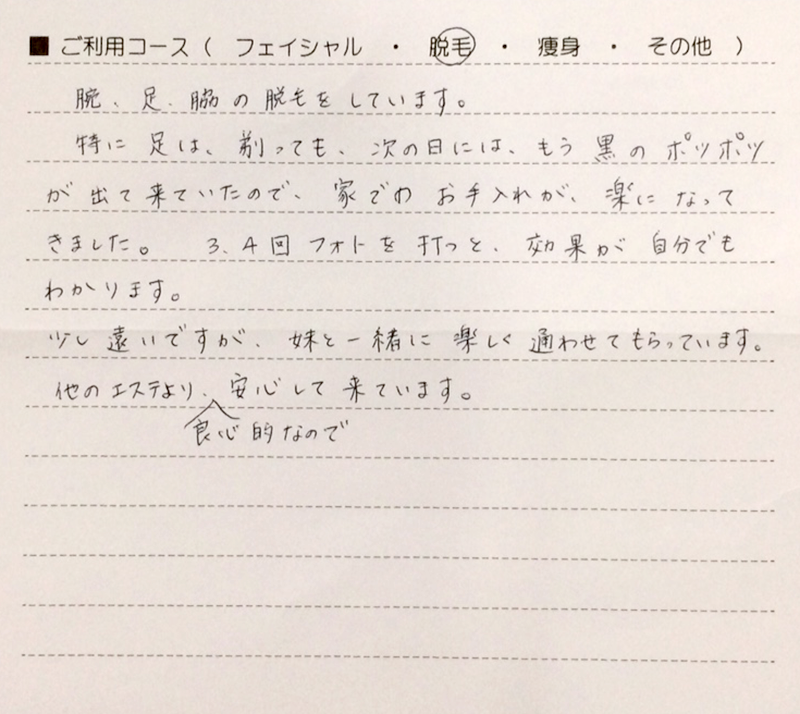 ■ ご利用コース（ フェイシャル ・ 脱毛 ・ 痩身 ・ その他 ）
腕、足、脇の脱毛をしています。
特に足は、剃っても、次の日には、もう黒のポツポツ
が出て来ていたので、家でのお手入れが、楽になって
きました。 3、4回フォトを打つと、効果が自分でも
わかります。
少し遠いですが、妹と一緒に楽しく通わせてもらっています。
他のエステより、安心して来ています。
良心的なので